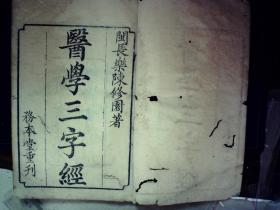 閩長樂陳修園著
醫學三字經
務本堂重刊